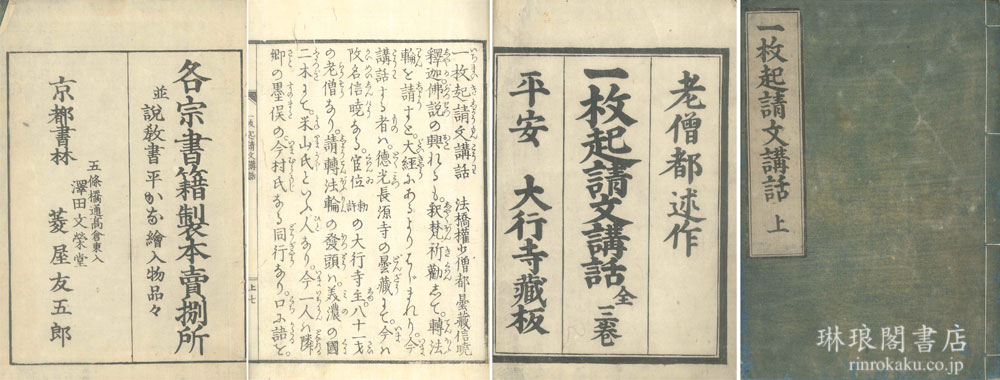 一枚起請文講話 上
老僧都述作
一枚起請文講話 全三巻
平安 大行寺藏板
一枚起請文講話 法橋權少僧都曇藏信曉
釋迦佛説の興れるも。我梵祈勸志て。轉法
輪を請すと。大経にあるよりはじまれり。今
講話する者ハ。徳光長源寺の曇藏にて今ハ
改名信曉なる。官位勅許の大行寺主八十一才
の老僧なり。請轉法輪の發頭ハ。美濃の國
二木にて。禾山氏といふ人あり。今一人ハ隣
郷の墨俣の。今村氏なる同行なり。口に詣と
一枚起請文講話
上七
各宗書籍製本賣捌所
並説教書平かな繪入物品々
京都書林
五條橋通高倉東入
澤田文榮堂
菱屋友五郎
琳琅閣書店
rinrokaku.co.jp